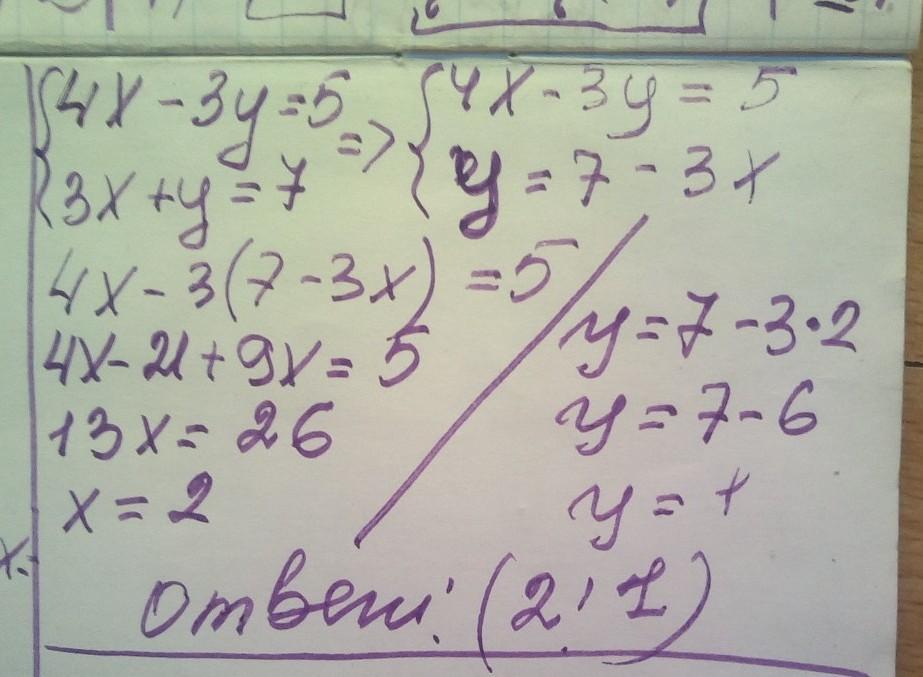 {4x - 3y = 5 => {4x - 3y = 5
{3x + y = 7 {y = 7 - 3x
4x - 3(7 - 3x) = 5
4x - 21 + 9x = 5
13x = 26
x = 2
y = 7 - 3·2
y = 7 - 6
y = 1
Ответ: (2; 1)